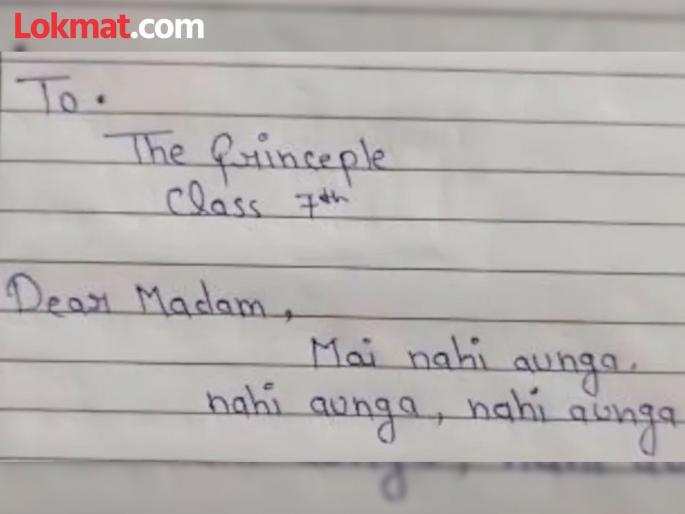 Lokmat.com
To.
The Princeple
Class 7th
Dear Madam,
Mai nahi aunga.
nahi aunga, nahi aunga